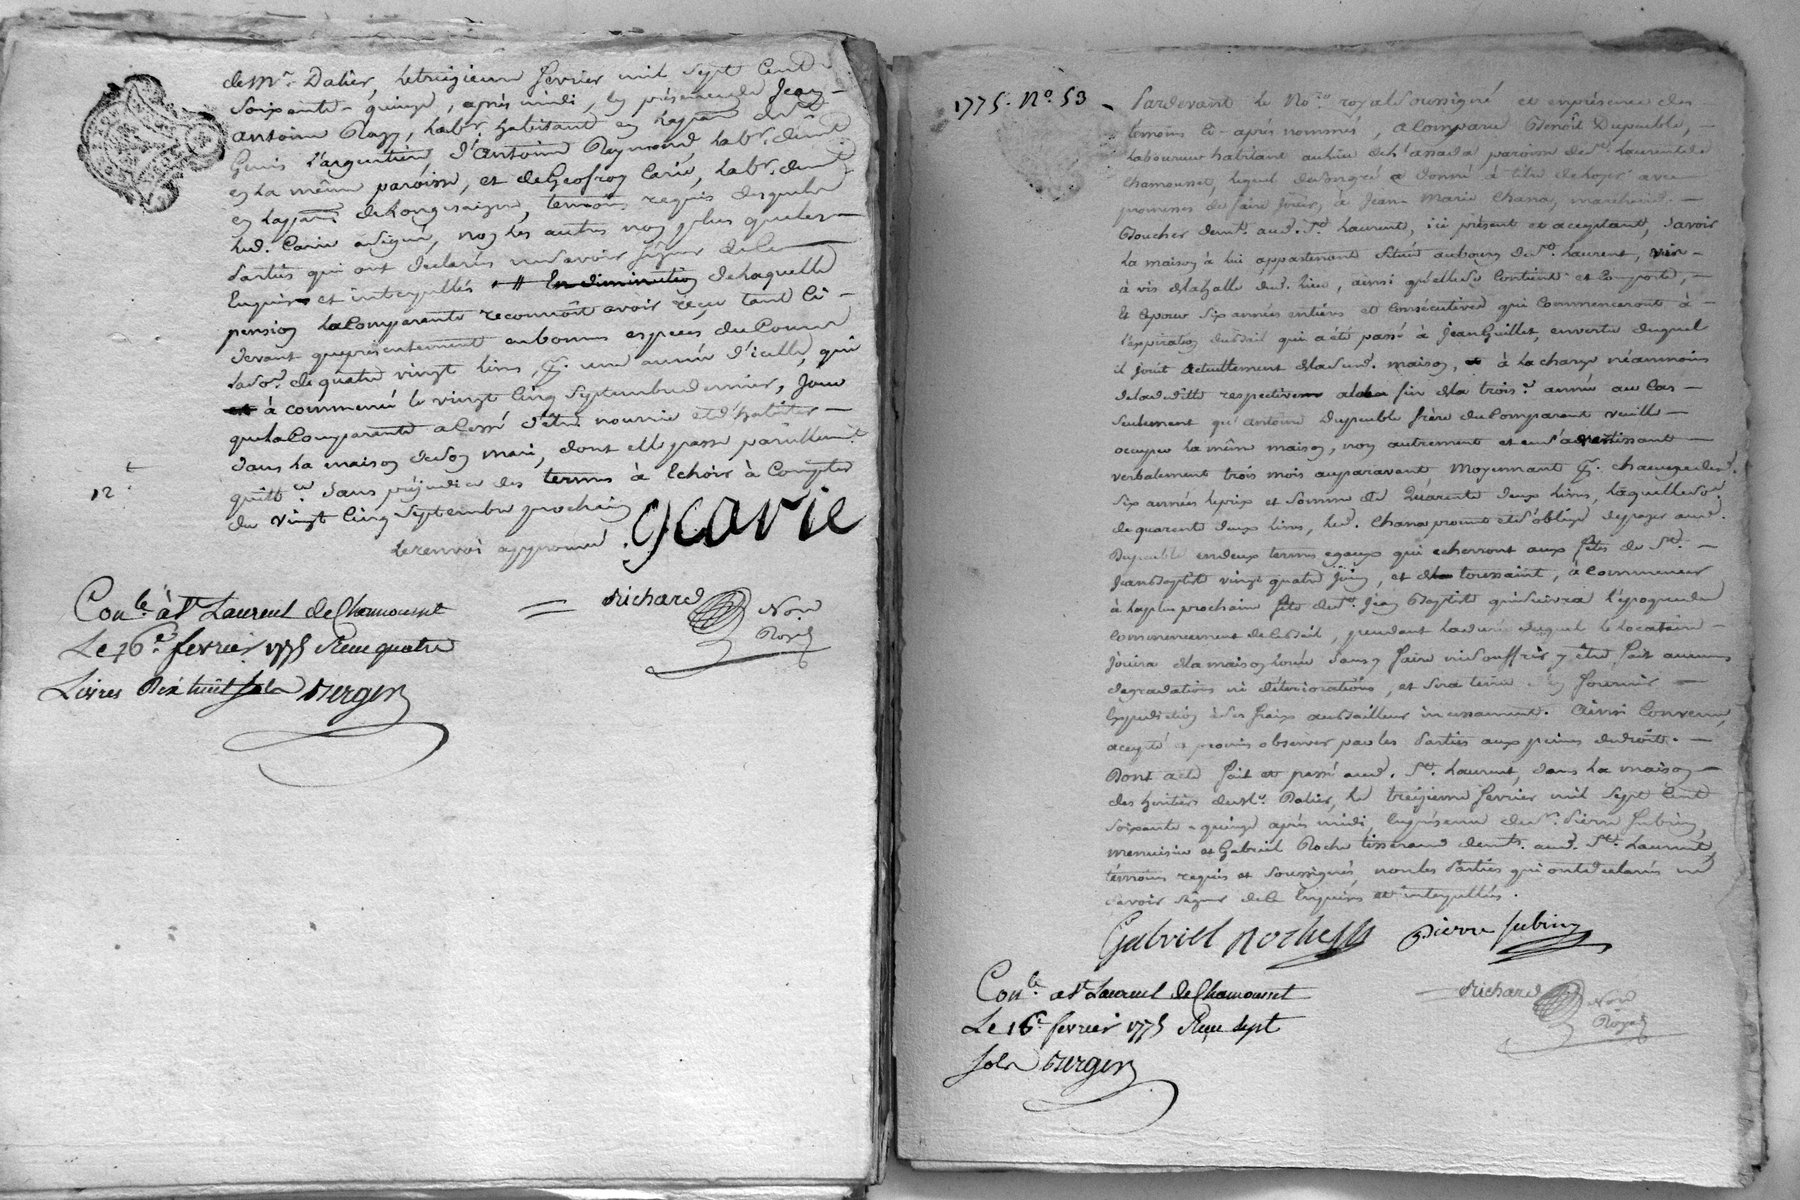 de Mr. Dalier, le treizieme fevrier mil sept cent
soixante-quinze, après midi, en présence de Jean-
antoine Ragy, labr. habitant en la parr.
Genis l'argentière, d'Antoine Reymond labr. demt.
en la même paroisse, et de Geofroy Carie, labr. demt.
en la parr. de Longesaigne, temoins requis desquels
led. Carie a signé, non les autres non plus que les
Parties qui ont declarés ne savoir signer de ce
Enquis et interpellés. # En diminution de laquelle
pension la Comparante reconnoit avoir reçu tant ci-
devant que présentement en bonnes especes du Cours
la so. de quatre vingt livres, p. une année d'icelle, qui
a commencé le vingt cinq Septembre dernier, jour
que la Comparante a cessé d'être nourrie et d'habiter
dans la maison de son mari, dont elle passe pareillement
quittce. sans préjudice des termes à Echoir à Compter
du vingt cinq Septembre prochain
12 t
le renvoi approuvé. gcarie
Conle. à St Laurent de Chamousset
Le 16e fevrier 1775 Reçu quatre
Livres Dix huit sols Berger
Richard Nore
Royal
1775. No. 53
Pardevant le No.re royal soussigné et en présence des
temoins ci-après nommés, a Comparu Benoît Dupeuble,
Laboureur habitant au lieu de paroisse de St. Laurent de
Chamousset, lequel de son gré a donné à titre de loyer avec
promesses de faire jouir, à Jean Marie Chana, marchand
Boucher demt. aud. St. Laurent, ici présent et acceptant, savoir
La maison à lui appartenant située au bourg de St. Laurent, vis-
à vis de la halle dud. lieu, ainsi qu'elle se Contient et Comporte,
Et ce pour six années entieres et consécutives qui Commenceront à
l'expiration du bail qui a été passé à Jean Guillet, en vertu duquel
il jouit actuellement de la sud. maison, à la charge néanmoins
de fin de la trois.e année au Cas
seulement qu'antoine Dupeuble frère du Comparant veuille
occuper la même maison, non autrement et en l'avertissant
verbalement trois mois auparavant Moyennant p. chacune desd.
six années le prix et somme de Quarente deux livres, laquelle so.
de quarente deux livres, led. Chana promet et s'oblige de payer aud.
Dupeuble en deux termes egaux qui echerront aux fêtes de St.
Jean Baptiste vingt quatre Juin, et de la toussaint, à Commencer
à la plus prochain fête de St. Jean Baptiste qui suivra l'époque du
Commencement de ce bail, pendant la durée duquel le locataire
jouira de la maison louée sans y faire ni souffrir y être fait aucunes
dégradations ni détériorations, et sera tenu d'en fournir
Expédition à ses frais au bailleur incessament. Ainsi Convenu,
accepté et promis observer par les Parties aux peines de droit.
Dont acte fait et passé aud. St. Laurent, dans la maison
des heritiers de Mr. Dalier, le treizieme fevrier mil sept Cent
soixante-quinze après midi, En présence de Sr. Pierre Jubin,
menuisier et Gabriel Roche tisserand demts. aud. St. Laurent,
témoins requis et soussignés non les Parties qui ont declarés ne
savoir signer de ce Enquis et interpellés.
Gabriel Roche Pierre Jubin
Conle. a St Laurent de Chamousset
Le 16e fevrier 1775 Reçu sept
sols Berger
Richard Nore
Royal